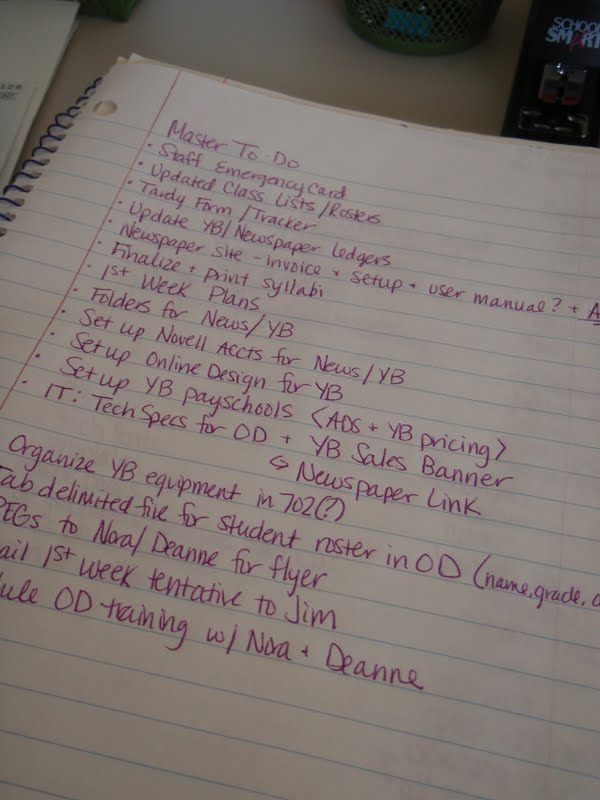 SCHOOL
SMART
Master To-Do
• Staff Emergency Card
• Updated Class Lists/Rosters
• Tardy Form/Tracker
• Update YB/Newspaper Ledgers
• Newspaper site - invoice + setup + user manual? + A
• Finalize + Print Syllabi
• 1st Week Plans
• Folders for News/YB
• Set up Novell Accts for News/YB
• Set up Online Design for YB
• Set up YB payschools <ADS + YB pricing>
• IT: Tech Specs for OD + YB Sales Banner
↳ Newspaper Link
Organize YB equipment in 702(?)
Tab delimited file for student roster in OD (name, grade,
PEGs to Nora/Deanne for flyer
ail 1st week tentative to Jim
ule OD training w/ Nora + Deanne